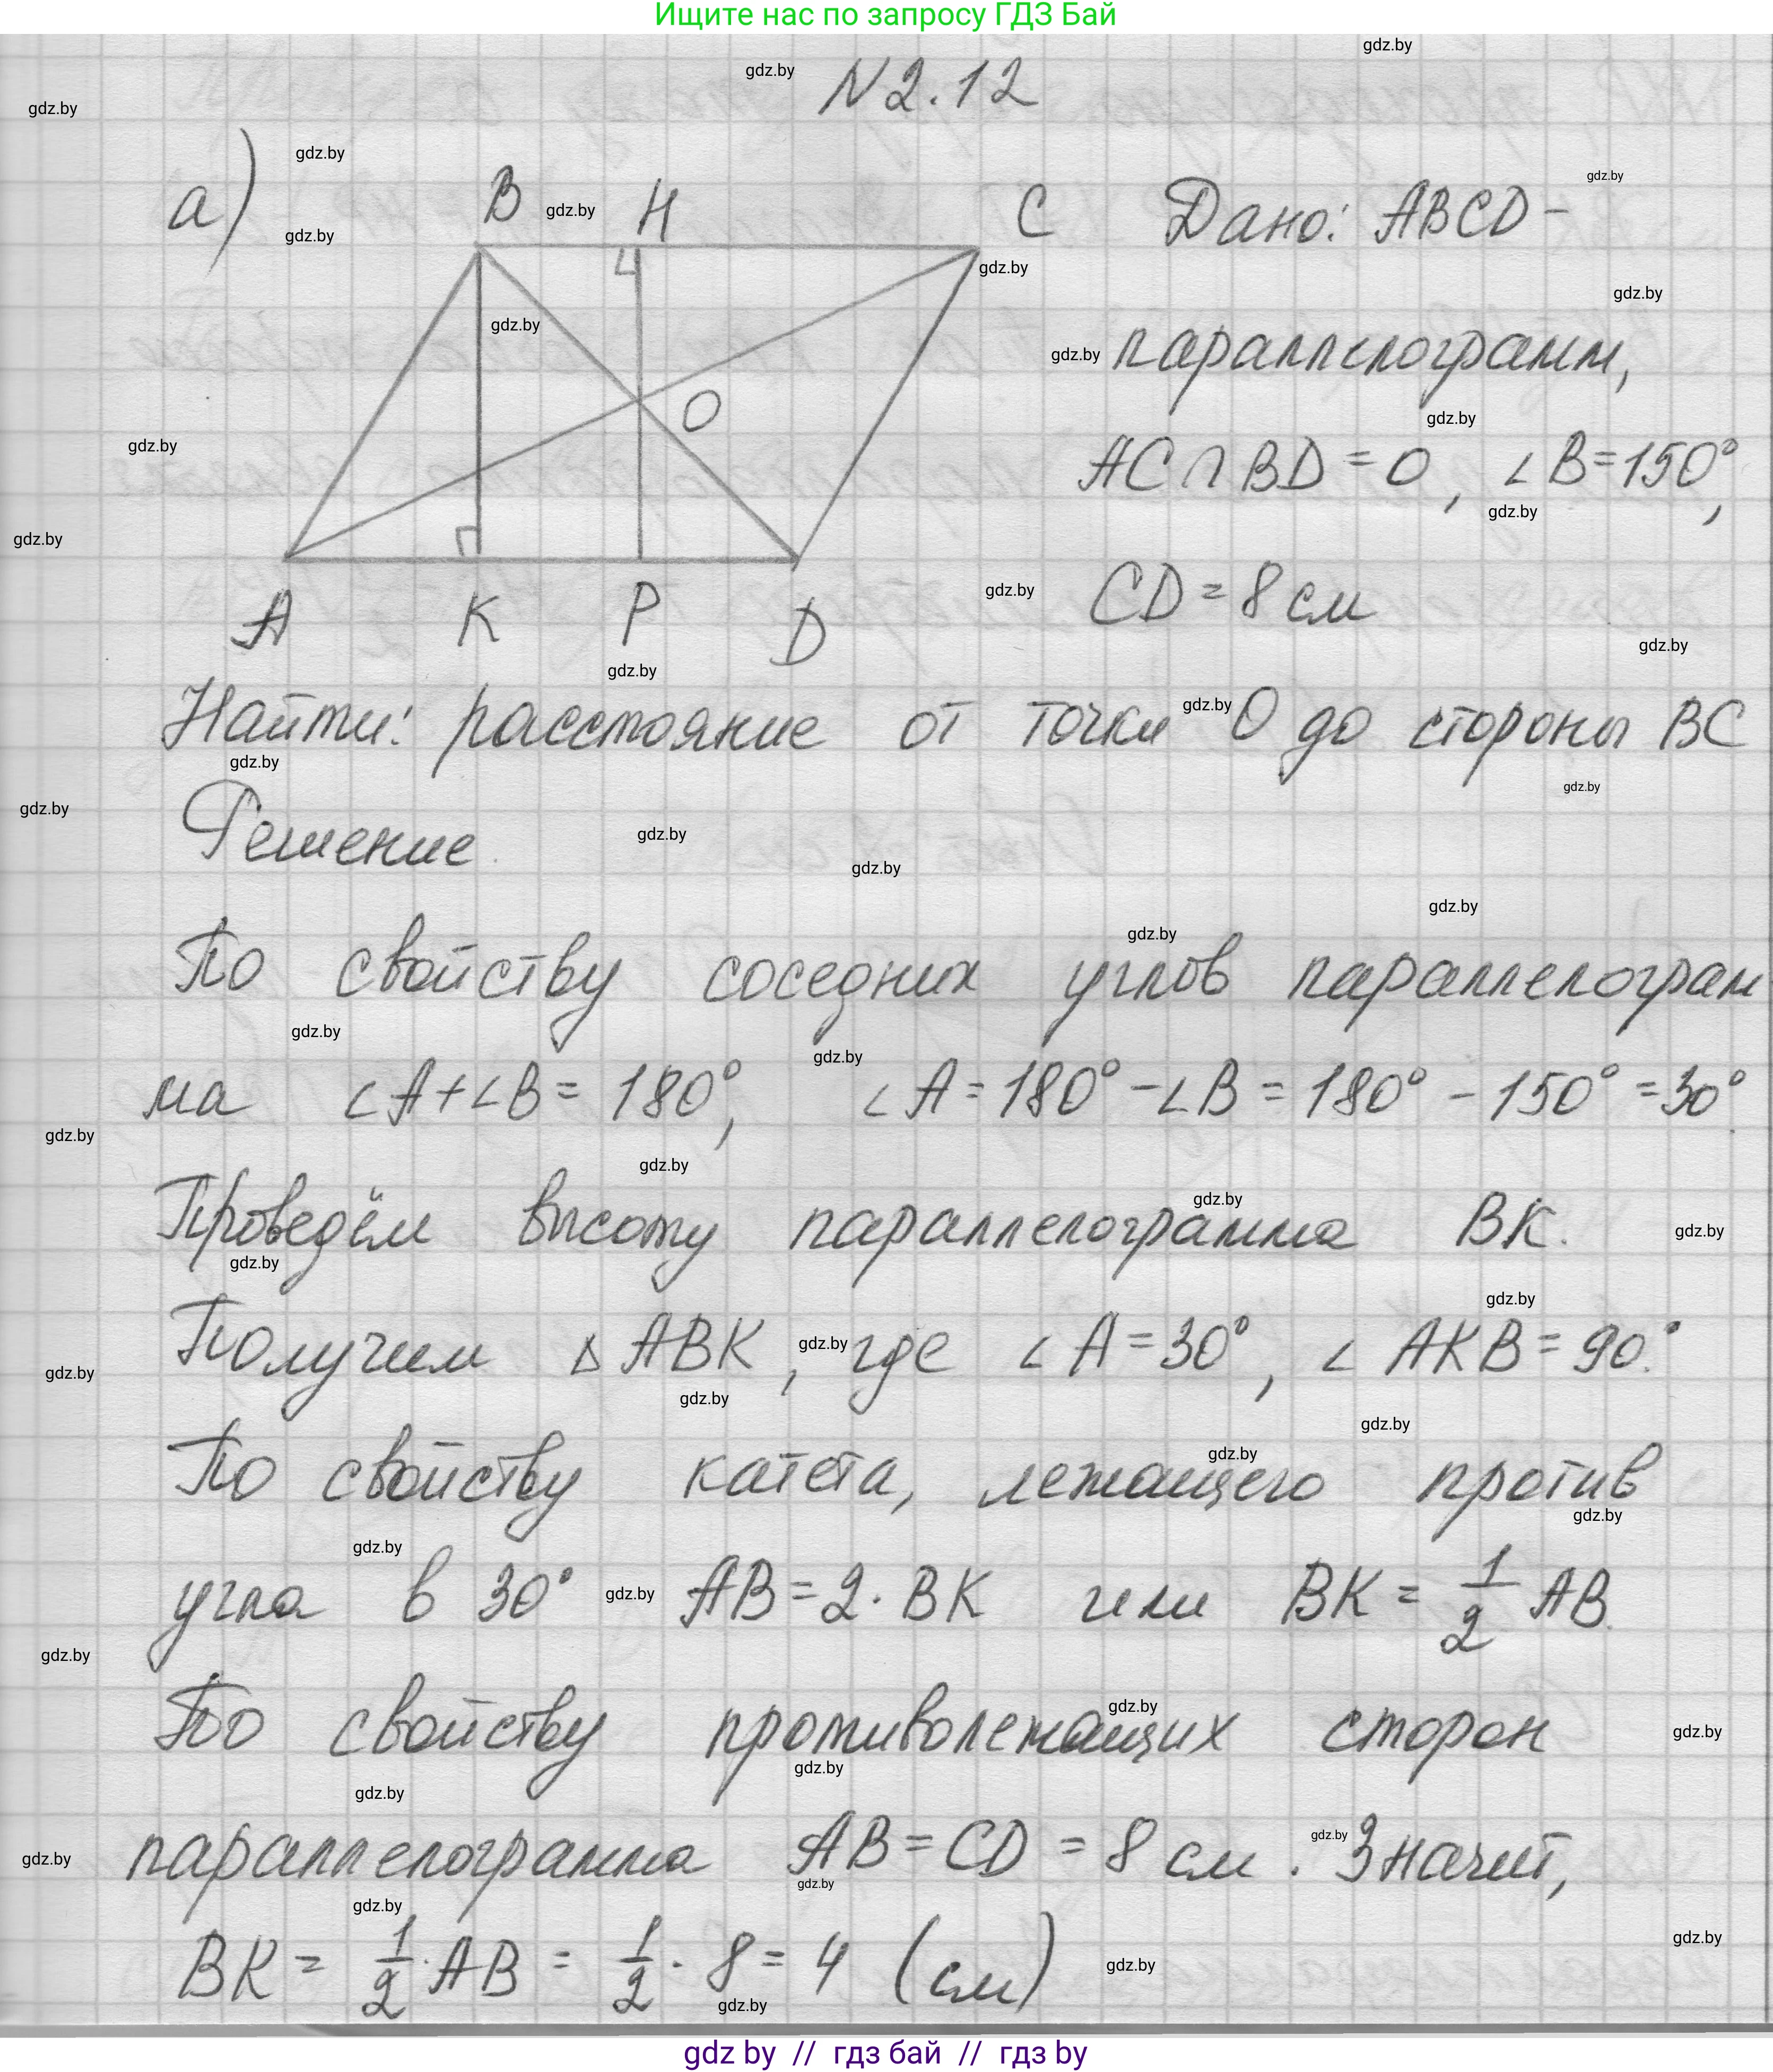 Ищите нас по запросу ГДЗ Бай
N 2.12
а)
B H C
O
A K P D
Дано: ABCD -
параллелограмм,
AC ∩ BD = O, ∠B = 150°,
CD = 8 см
Найти: расстояние от точки O до стороны BC
Решение.
По свойству соседних углов параллелограм
ма ∠A + ∠B = 180°, ∠A = 180° - ∠B = 180° - 150° = 30°
Проведём высоту параллелограмма BK.
Получим △ABK, где ∠A = 30°, ∠AKB = 90°.
По свойству катета, лежащего против
угла в 30° AB = 2·BK или BK = 1/2 AB.
По свойству противолежащих сторон
параллелограмма AB = CD = 8 см. Значит,
BK = 1/2·AB = 1/2·8 = 4 (см)
gdz by // гдз бай // гдз by